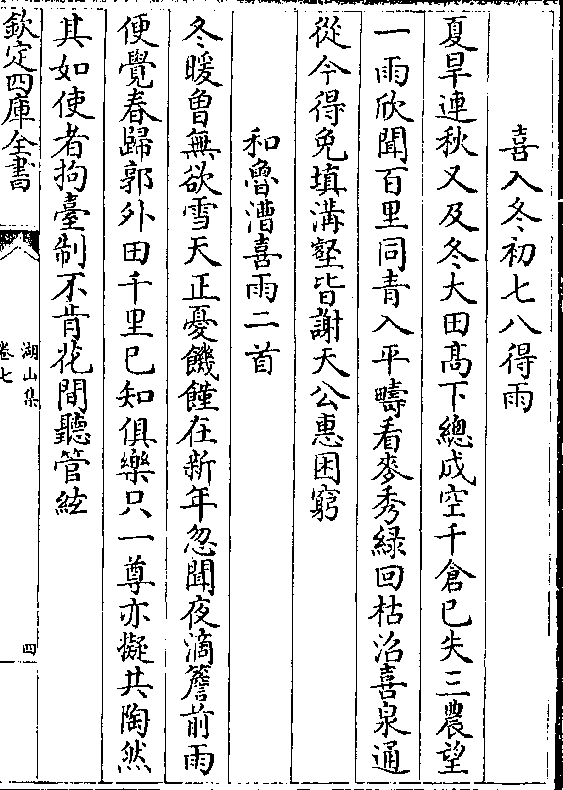 喜入冬初七八得雨
夏旱連秋又及冬大田髙下總成空千倉已失三農望
一雨欣聞百里同青入平疇看麥秀緑回枯沼喜泉通
從今得免填溝壑皆謝天公惠困窮
和魯漕喜雨二首
冬暖曽無欲雪天正憂饑饉在新年忽聞夜滴簷前雨
便覺春歸郭外田千里已知俱樂只一尊亦擬共陶然
其如使者拘臺制不肯花間聽管絃
欽定四庫全書
湖山集
卷七
四